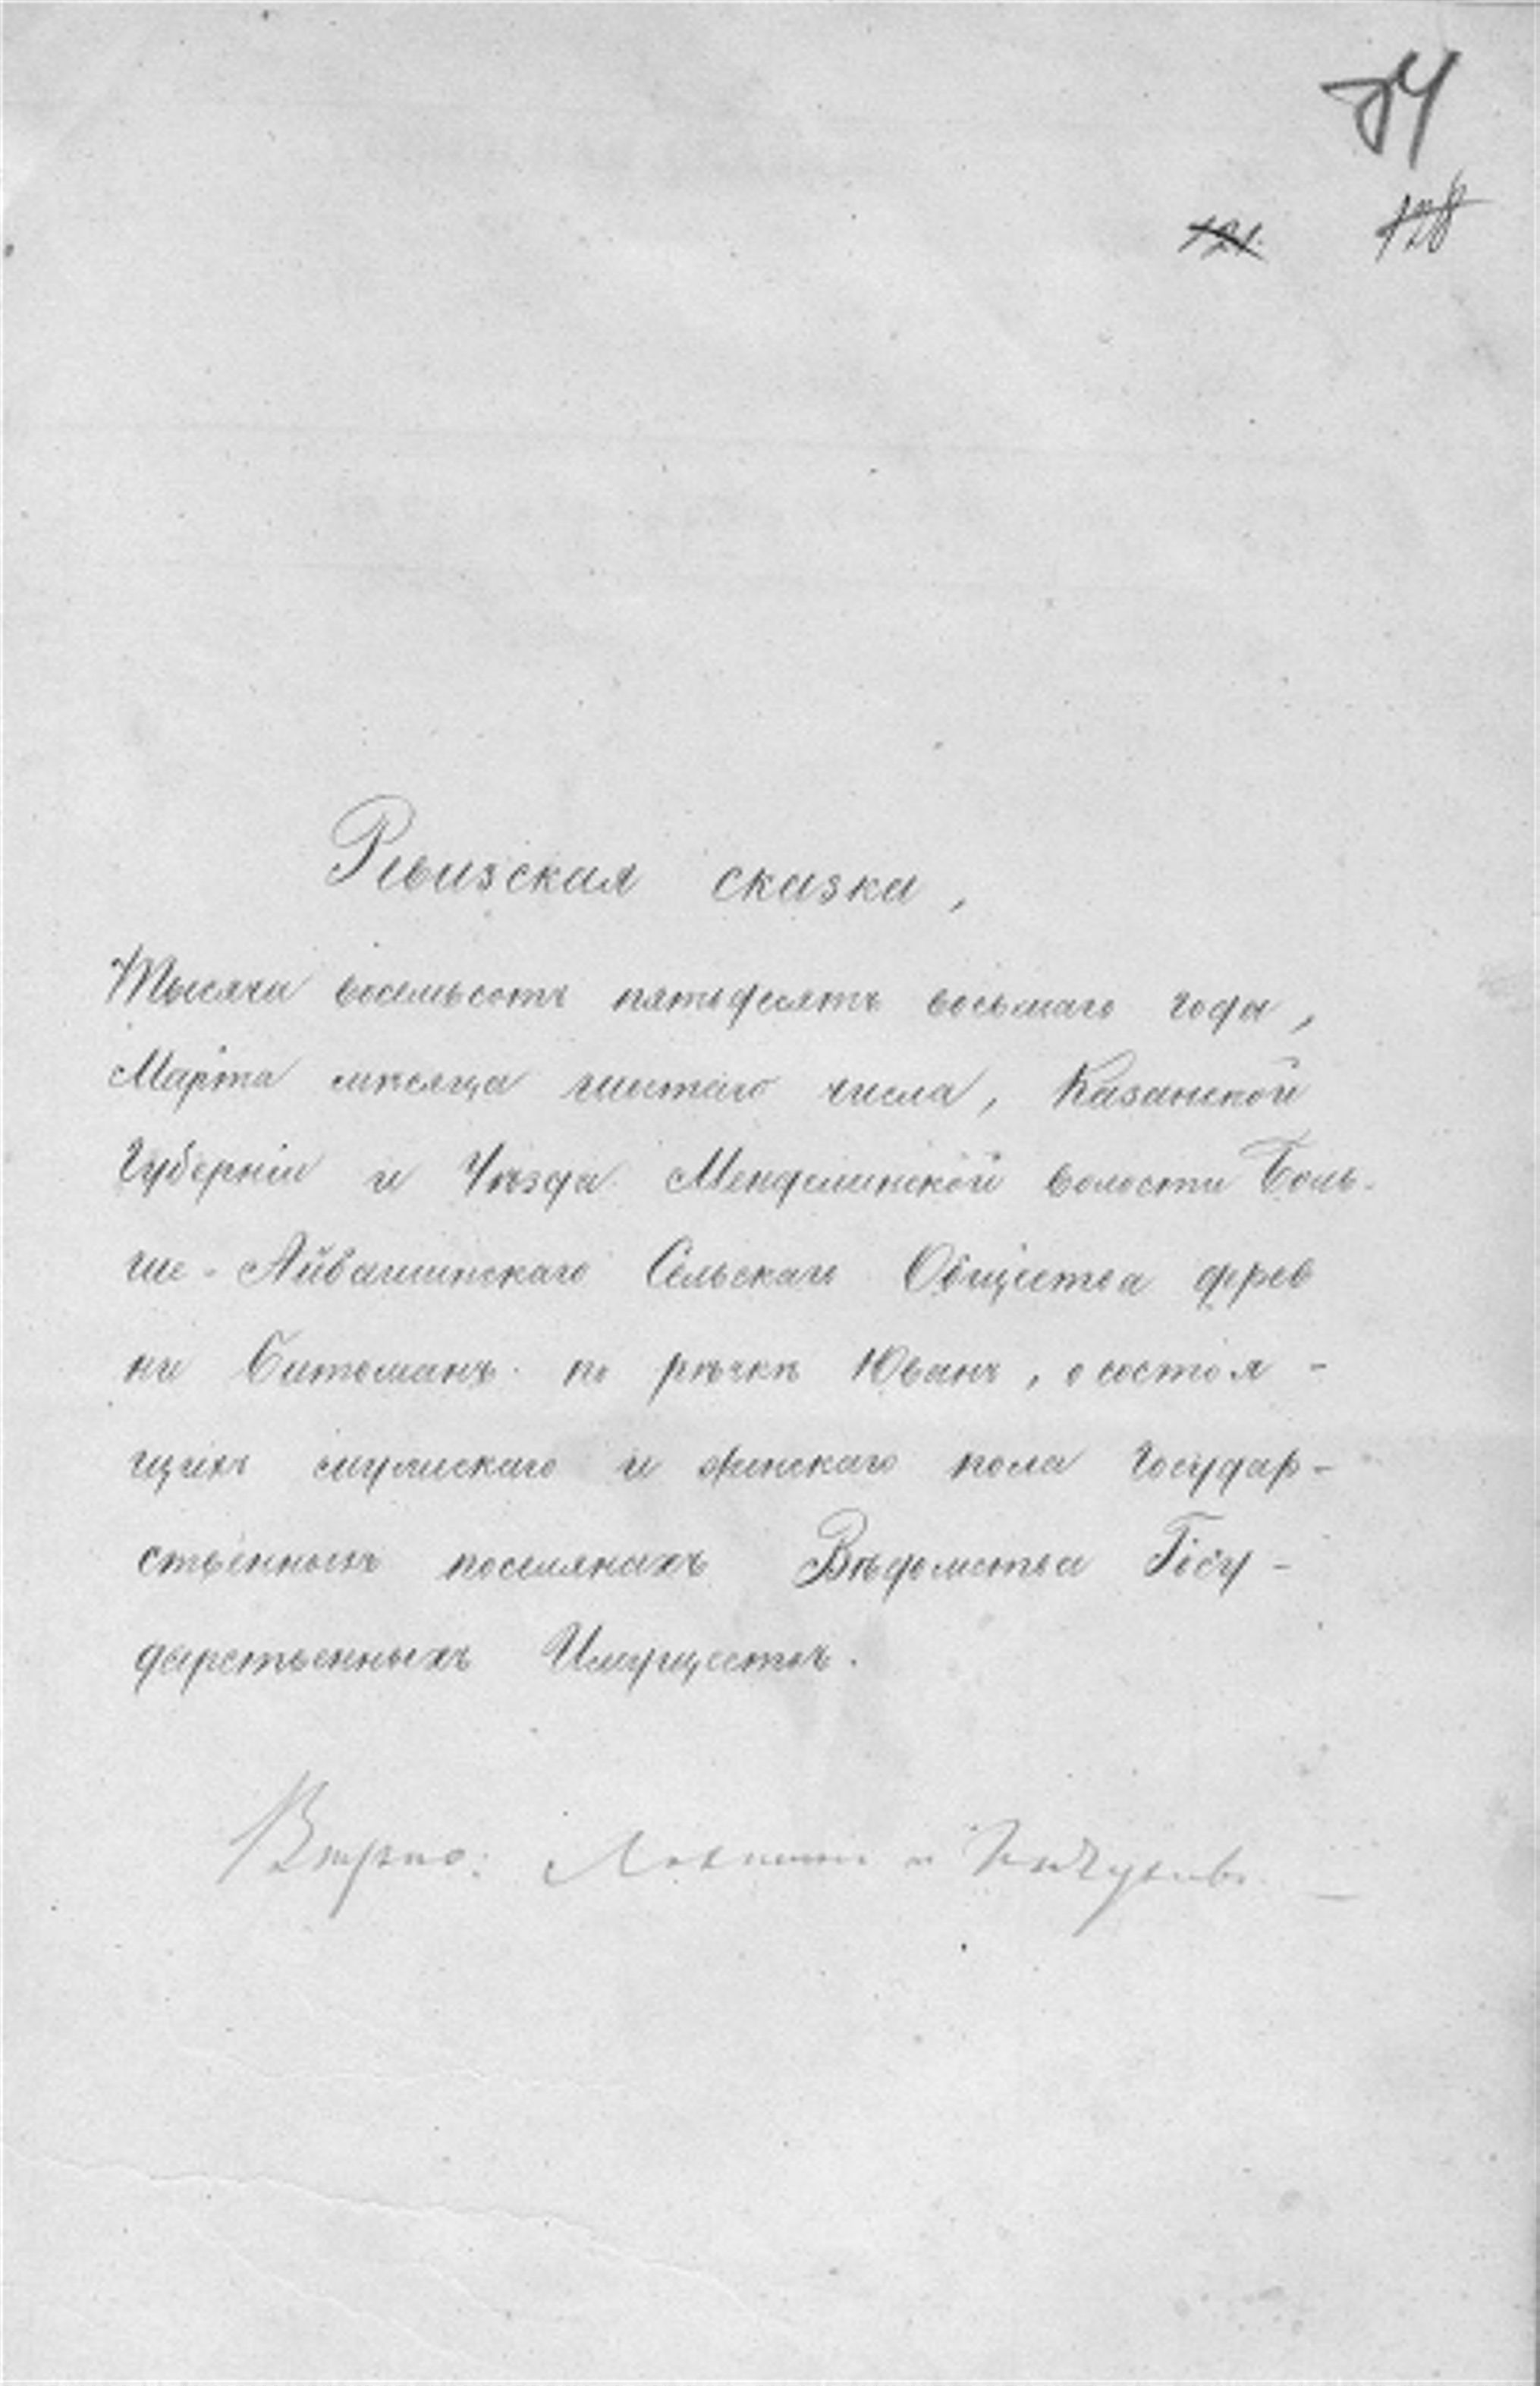 34
121.
128
Ревизская сказка,
Тысяча восемьсотъ пятьдесятъ восьмаго года,
Марта мѣсяца шестаго числа, Казанской
Губерніи и Уѣзда Менделинской волости Боль-
ше-Айвашинскаго Сельскаго Общества дерев
ни Битаманъ по рѣчкѣ Юванъ, о состоя-
щихъ мужискаго и женскаго пола Государ-
ственныхъ поселянахъ Вѣдомства Госу-
дарственныхъ Имуществъ.
Вѣрно: